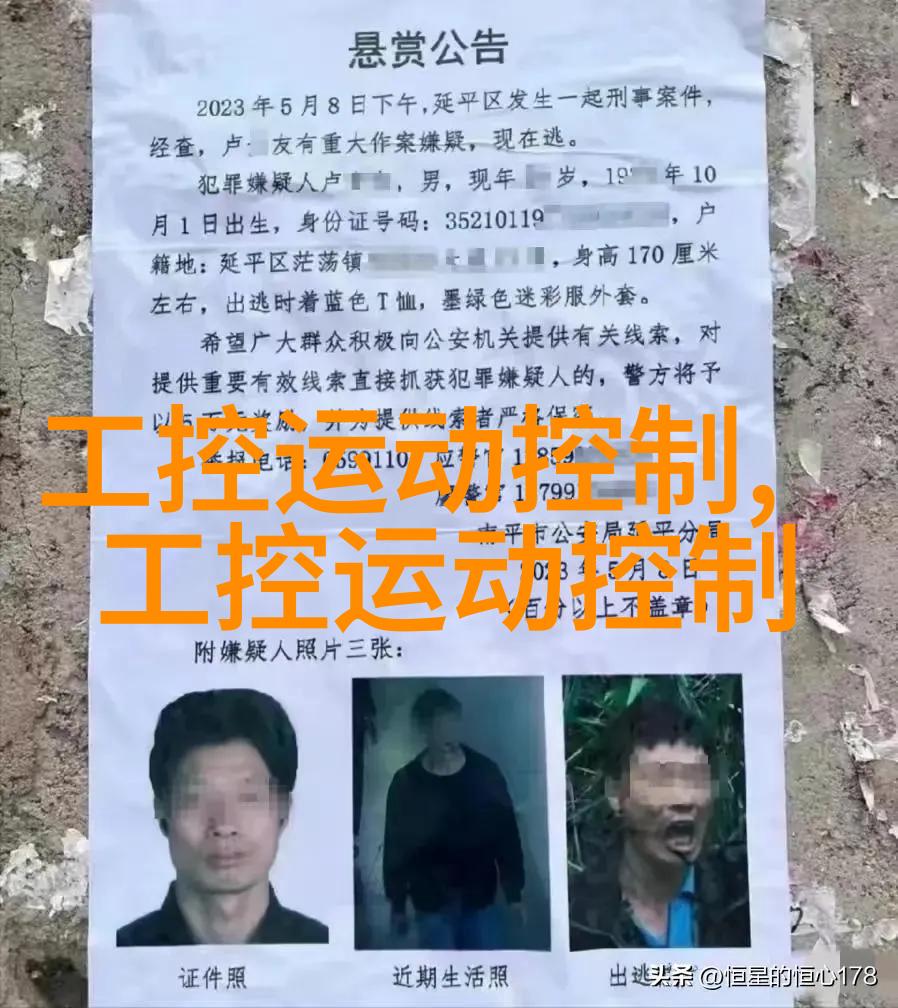 悬赏公告
2023年5月8日下午，延平区发生一起刑事案件，
经查，卢 友有重大作案嫌疑，现在逃。
犯罪嫌疑人卢 ，男，现年 岁，19 年10
月1日出生，身份证号码：35210119 ，户
籍地：延平区茫荡镇 ，身高170厘米
左右，出逃时着蓝色T恤，墨绿色迷彩服外套。
希望广大群众积极向公安机关提供有关线索，对
提供重要有效线索直接抓获犯罪嫌疑人的，警方将予
工控运动控制，
工控运动控制
南平市公安局延平分局
2023年5月8日
附嫌疑人照片三张：
证件照
近期生活照
出逃
头条 @恒星的恒心178